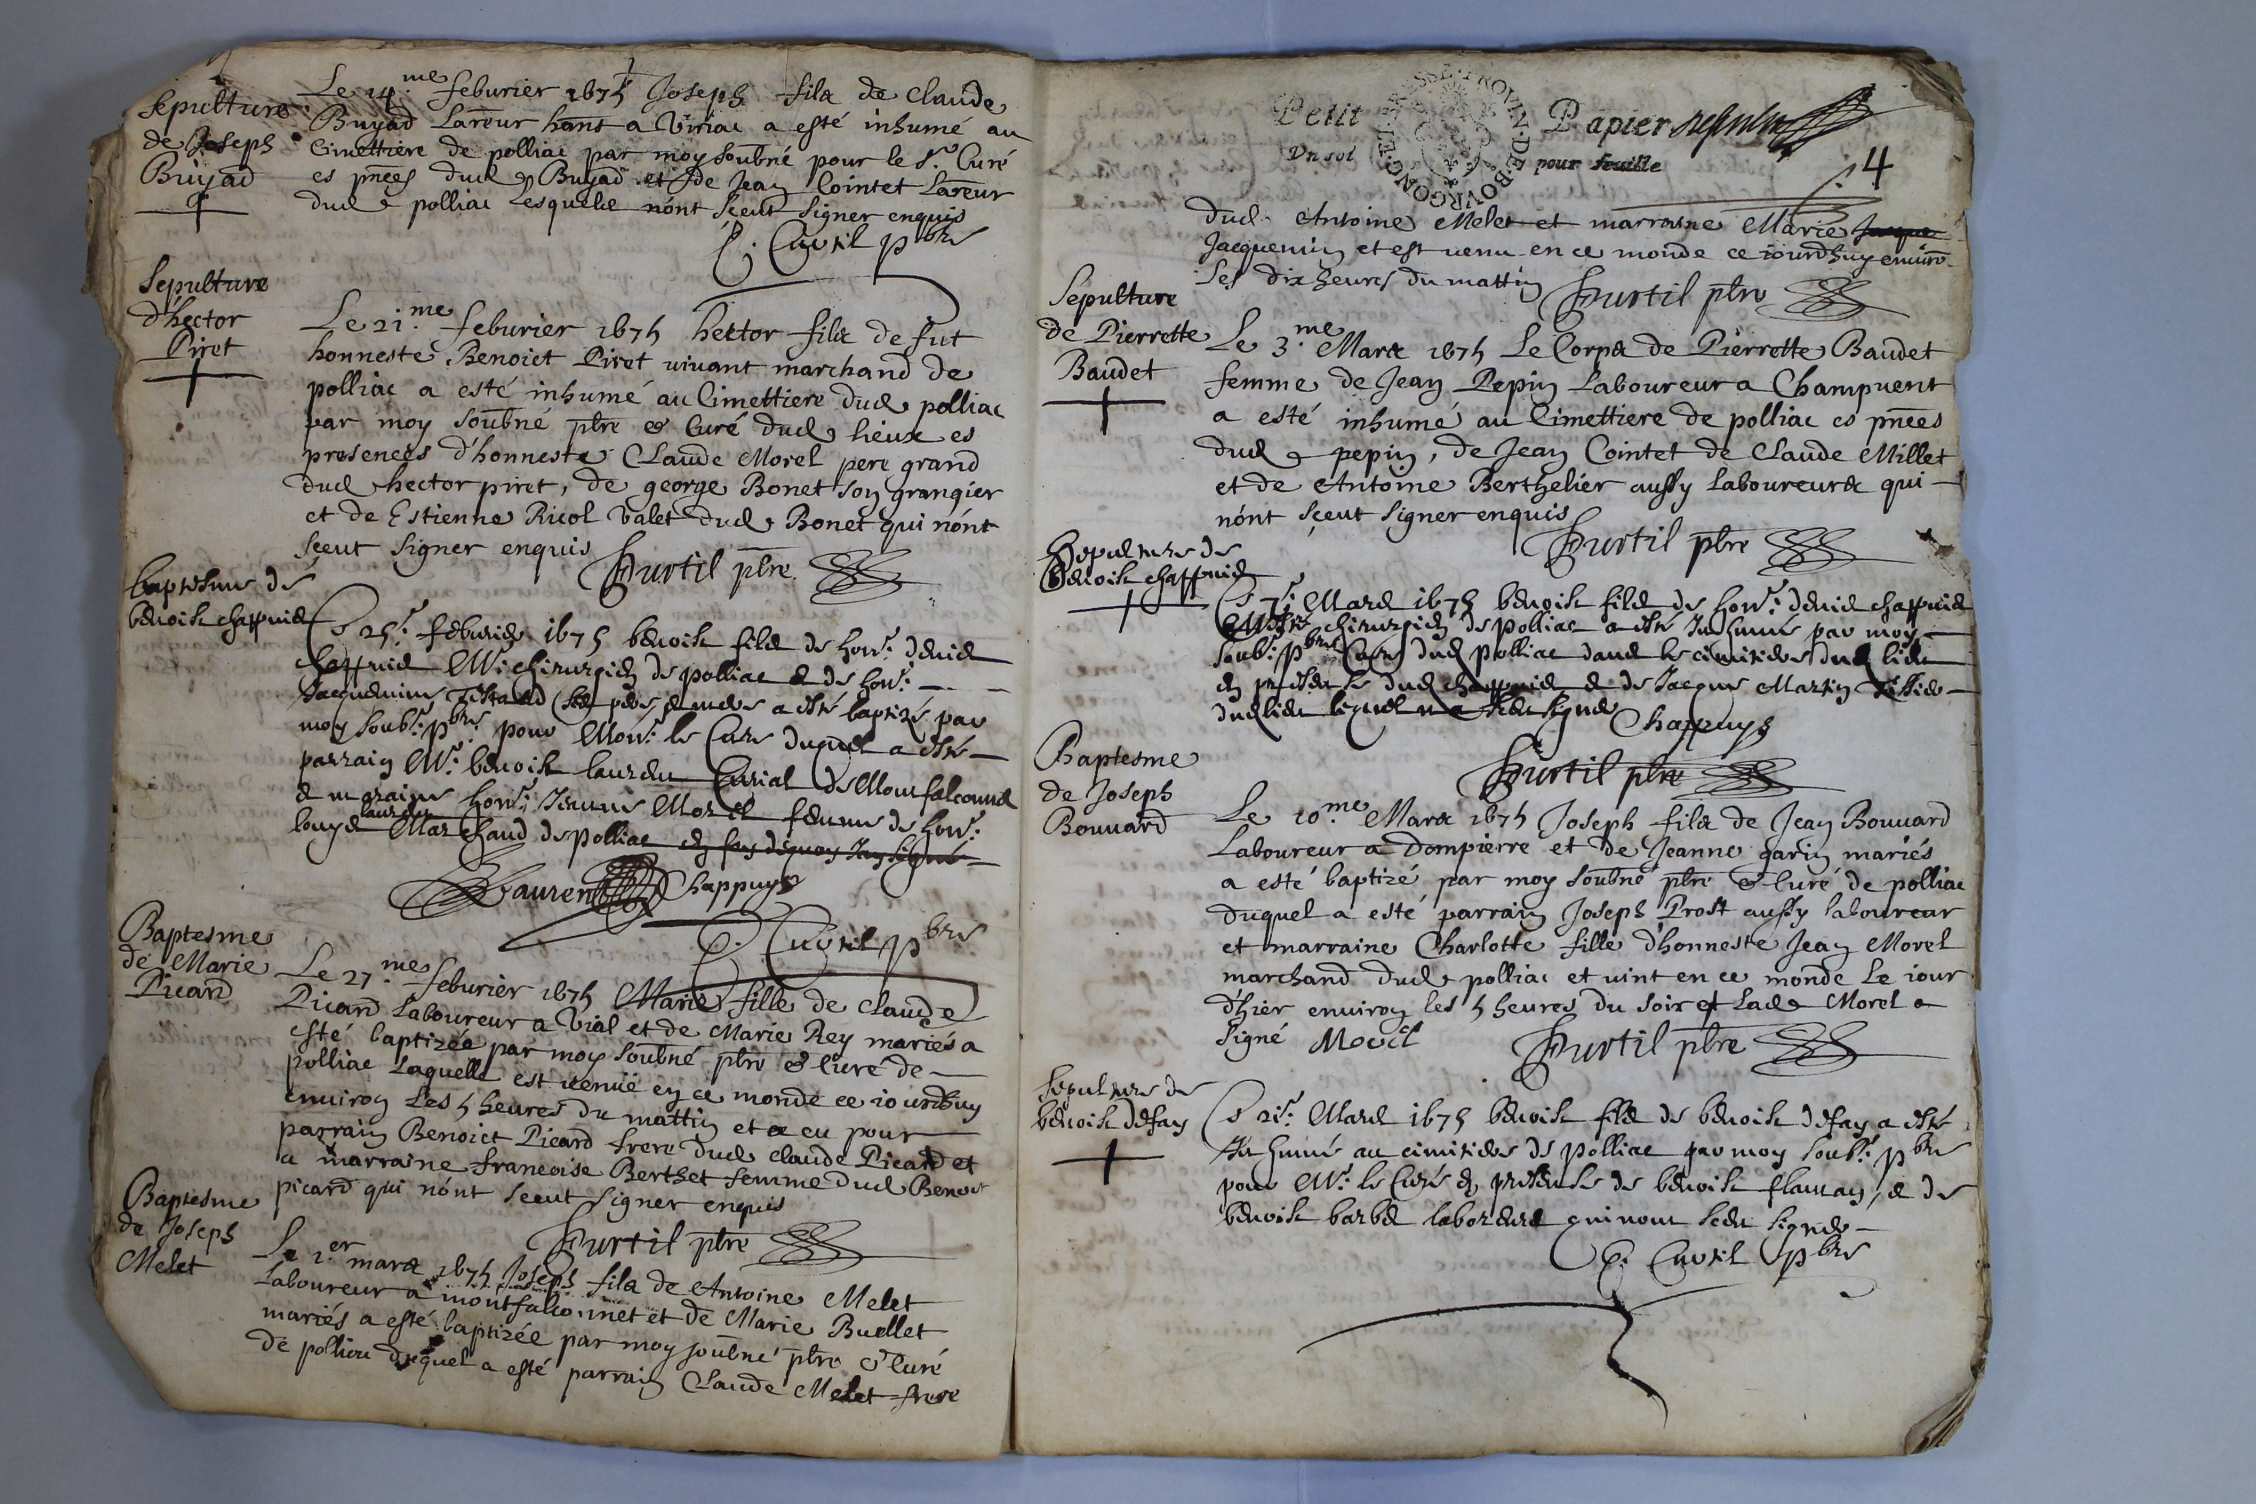 Sepulture
de Joseph
Buyad
Le 14.me feburier 1675 Joseph fils de Claude
Buyad Lareur hant a Viriac a esté inhumé au
Cimettiere de polliac par moy soubné pour le Sr. Curé
es pnces dud Buyad et de Jean Cointet Lareur
dud polliac Lesquelz nónt sceut signer enquis
C. Curtil pbre
Sepulture
d'hector
Piret
Le 21.me feburier 1675 hector fils de fut
honneste Benoict Piret vivant marchand de
polliac a esté inhumé au Cimettiere dud polliac
par moy soubné ptre & Curé dud lieux es
presences d'honneste Claude Morel pere grand
dud hector piret, de george Bonet son grangier
et de Estienne Ricol valet dud Bonet qui nónt
sceut signer enquis Curtil ptre
baptesme de
benoist chappuid
Le 25e. feburier 1675 benoist fils de hon: denid
chappuid Me. chirurgien de polliac & de hon:
Jacquemine pere & mere a esté baptizé par
moy soub: pbre pour Mons: le Cure duquel a esté
parrain Me. benoist laurent Curial de Montfalconnet
& maraine hon: Jeanne Morel femme de hon:
louys laurent Marchand de polliac
Laurent Chappuys
C. Curtil pbre
Baptesme
de Marie
Picard
Le 27.me feburier 1675 Marie fille de Claude
Picard Laboureur a Vial et de Marie Rey mariés a
esté baptizée par moy soubné ptre & Curé de
polliac Laquelle est venuë en ce monde ce iourdhuy
environ Les 5 heures du mattin et a eu pour
parrain Benoict Picard frere dud Claude Picard et
a marraine francoise Berthet femme dud Benoit
picard qui nónt sceut signer enquis
Curtil ptre
Baptesme
de Joseph
Melet
Le 1.er mars 1675 Joseph fils de Antoine Melet
Laboureur a montfalconnet et de Marie Buellet
mariés a esté baptizée par moy soubné ptre & Curé
de polliou duquel a esté parrain Claude Melet frere
Petit Papier
Un sol pour feuille
4
dud Antoine Melet et marraine Marie Jacque
Jacquemin et est venu en ce monde ce iourdhuy enuiro
Les dix heures du mattin Curtil ptre
Sepulture
de Pierrette
Baudet
Le 3.me Mars 1675 Le Corps de Pierrette Baudet
femme de Jean Pepin Laboureur a Champvent
a esté inhumé au Cimettiere de polliac es pnces
dud pepin, de Jean Cointet de Claude Millet
et de Antoine Berthelier aussy Laboureurs qui
nónt sceut signer enquis
Curtil ptre
Sepulture de
Benoist chappuid
Le 7e. Mars 1675 benoist fils de hon: denid chappuid
Me chirurgien de polliac a esté Inhumé par moy
soub: pbre Cure dud polliac dans le cimitiere dud lieu
en presence dud chappuid & de Jacque Martin
dud lieu lequel na sceu signer Chappuys
Curtil ptre
Baptesme
de Joseph
Bouuard
Le 10.me Mars 1675 Joseph fils de Jean Bouuard
Laboureur a Dompierre et de Jeanne garin mariés
a esté baptizé par moy soubné ptre & Curé de polliac
duquel a esté parrain Joseph Prost aussy laboureur
et marraine Charlotte fille d'honneste Jean Morel
marchand dud polliac et vint en ce monde Le iour
d'hier environ les 5 heures du soir et Lad Morel a
signé Morel Curtil ptre
Sepulture de
benoist defay
Le 21e. Mars 1675 benoist fils de benoist defay a esté
Inhumé au cimitiere de polliac par moy soub: pbre
pour Mr. le Curé en presence de benoist flaman, & de
benoist barbe laboreurs qui nont sceu signer
C. Curtil pbre